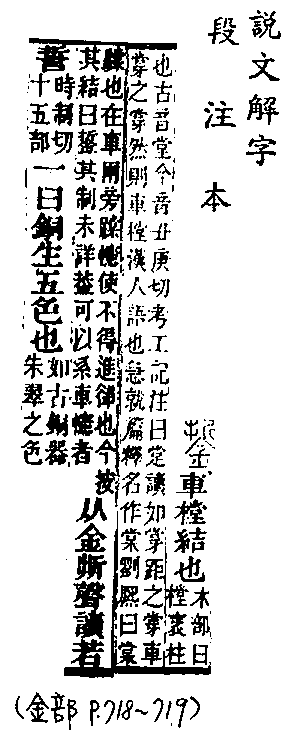 説文解字
段注本
銴車樘結也木部曰樘衺柱
也古音堂今音丑庚切考工記注曰讀如牚距之牚車
牚之牚然則車樘漢人語也急就篇釋名作棠劉熙曰棠
也在車兩旁幰使不得進卻也今按
其結曰銴其制未詳葢可以系車幰者
从金折聲讀若
誓時制切十五部一曰銅生五色也如古銅器朱翠之色
(金部 P.718~719)